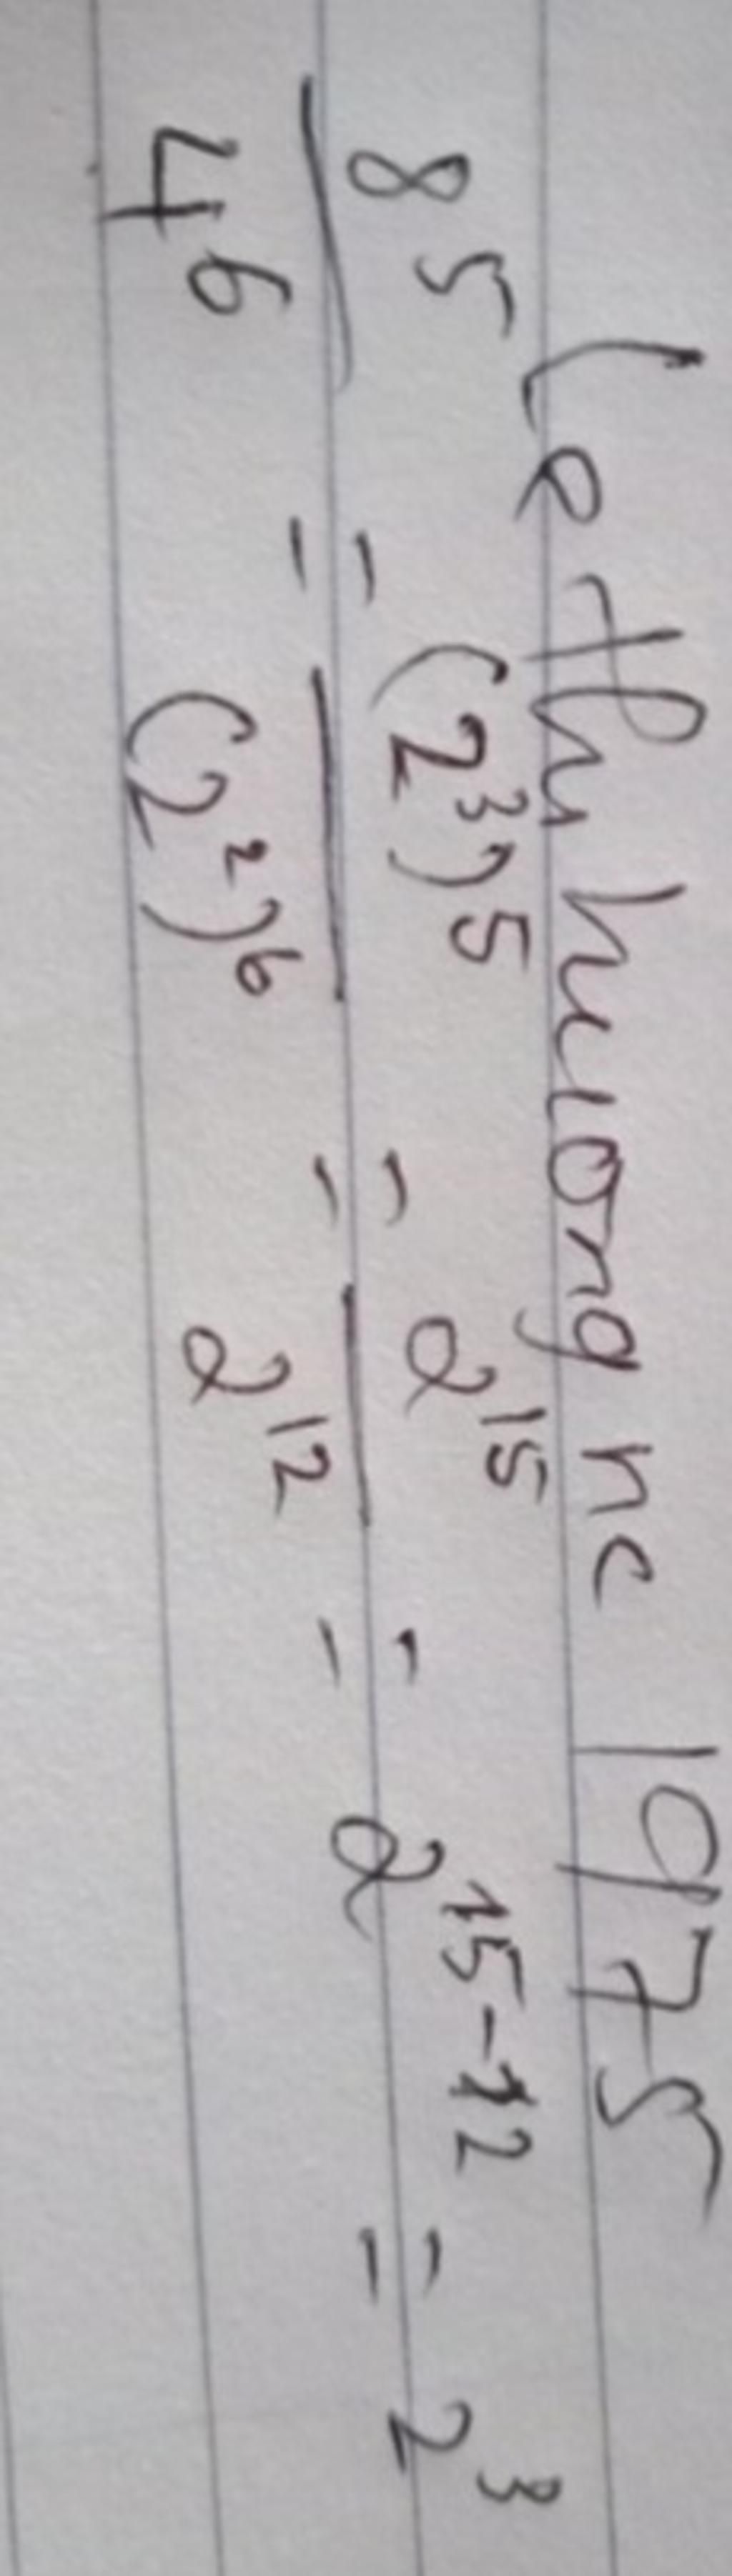 Le thu huong nc 1975
8^5/4^6 = (2^3)^5/(2^2)^6 = 2^15/2^12 = 2^15-12 = 2^3